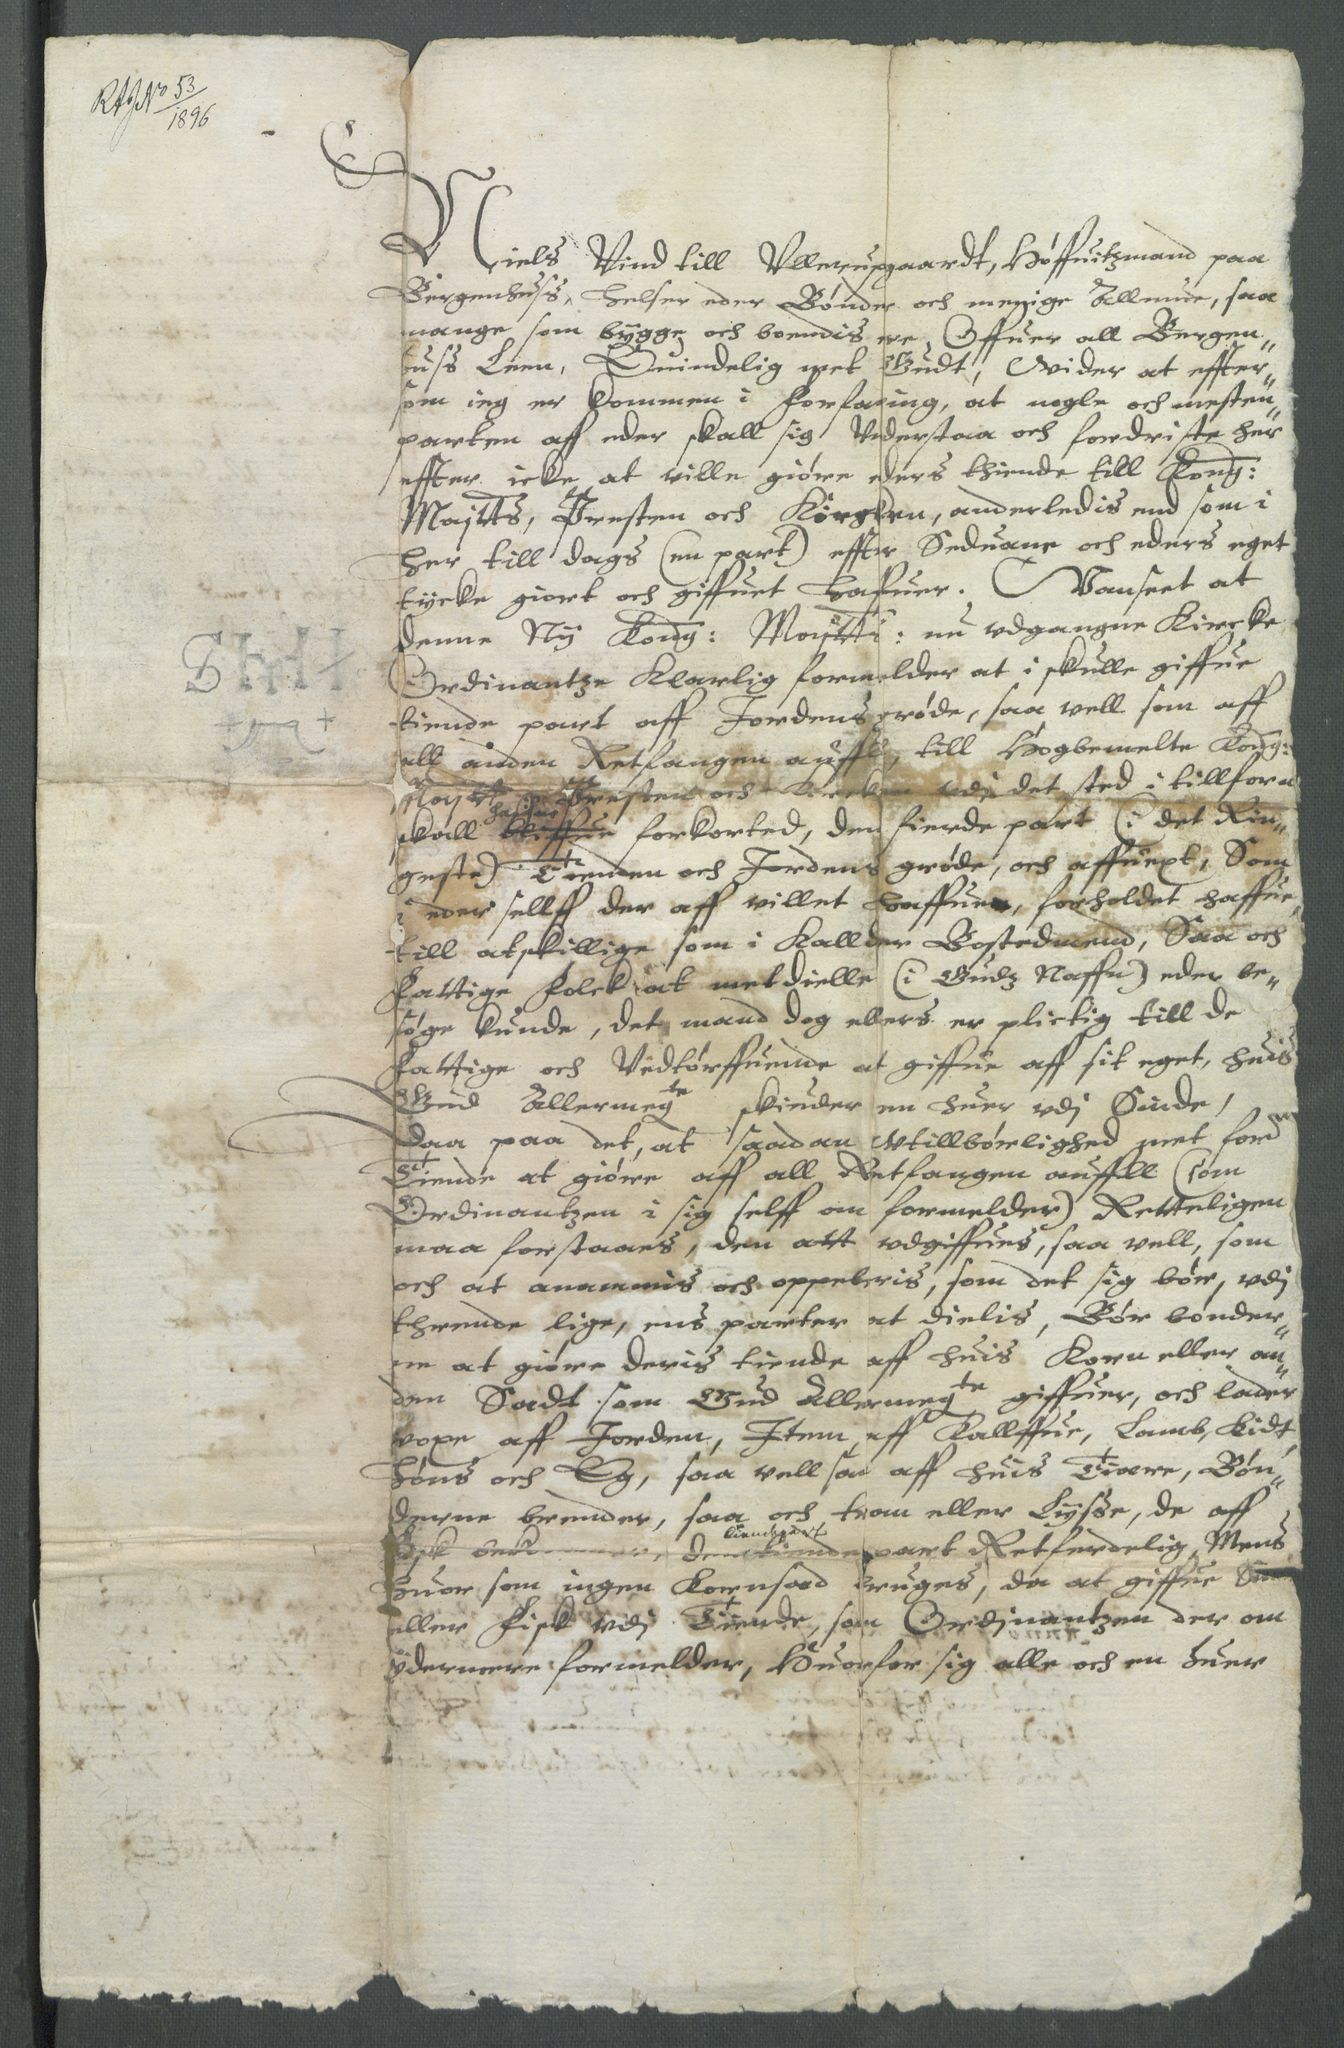 RA J No 53/1896
Niels Vind till Vllerupgaardt, Höffuitzmand paa
Bergenhuss, helser eder Bönder och menige Allmue, saa
mange som bygge och boendis ere, Offuer all Bergen„
huss Leen, Kuindelig met Gudt, Wider at effter„
som ieg er kommen i forfaring, at nogle och mesten„
parten aff eder skall sig vnderstaa och fordriste her
effter icke at ville giöre eders thiende till Kong:
Maytts, Presten och Kirgken, anderledis end som i
her till dags (en part) effter Seduane och eders eget
tycke giort och giffuet haffuer. Vanseet at
denne Ny Kong: Maytts: nu vdgangne Kircke
Ordinantze Klarlig formelder at i skulle giffue
tiende part aff Jordens gröde, saa vell som aff
all anden Retfangen auffll, till Högbemelte Kong:
Maytt Presten och Kircken vdj det sted i tillforn
skall haffue forkorted, den fierde part (i det Rin„
geste) Tienden och Jordens gröde, och affuext, Som
i eder sellff der aff villet haffuer, forholdet haffue,
till atskillige som i Kallder Bostedmend, Saa och
fattige folck at metdielle (i Gudz Naffn) eder be„
söge kunde, det mand dog ellers er plictig till de
fattige och Nödtörffuende at giffue aff sit eget, huis
Gud Allermegte skiender en huer vdj Sinde,
Daa paa det, at saadan vtillbörlighed met ford
Tiende at giöre aff all Retfangen auffll (som
Ordinantzen i sig selff om formelder) Retteligen
maa forstaaes, den att vdgiffues, saa vell, som
och at anammis och oppeberis, som det sig bör, vdj
thrende lige, ens parter at dielis, Bör bönder„
ne at giöre deris tiende aff huis Korn eller an„
den Sædt som Gud Allermegte giffuer, och lader
voxe aff Jorden, Item aff Kallffue, Lamb, Kidt,
höns och Eg, saa vell som aff huis Tiære, Bön„
derne brender, saa och tran eller Lysse, de aff
Fisk bekommer, den tiende part Retferdelig, Mens
huor som ingen Kornsæd bruges, da at giffue
eller Fisk vdj Tiende, som Ordinantzen der om
ydermere formelder, Huorfor sig alle och en huer